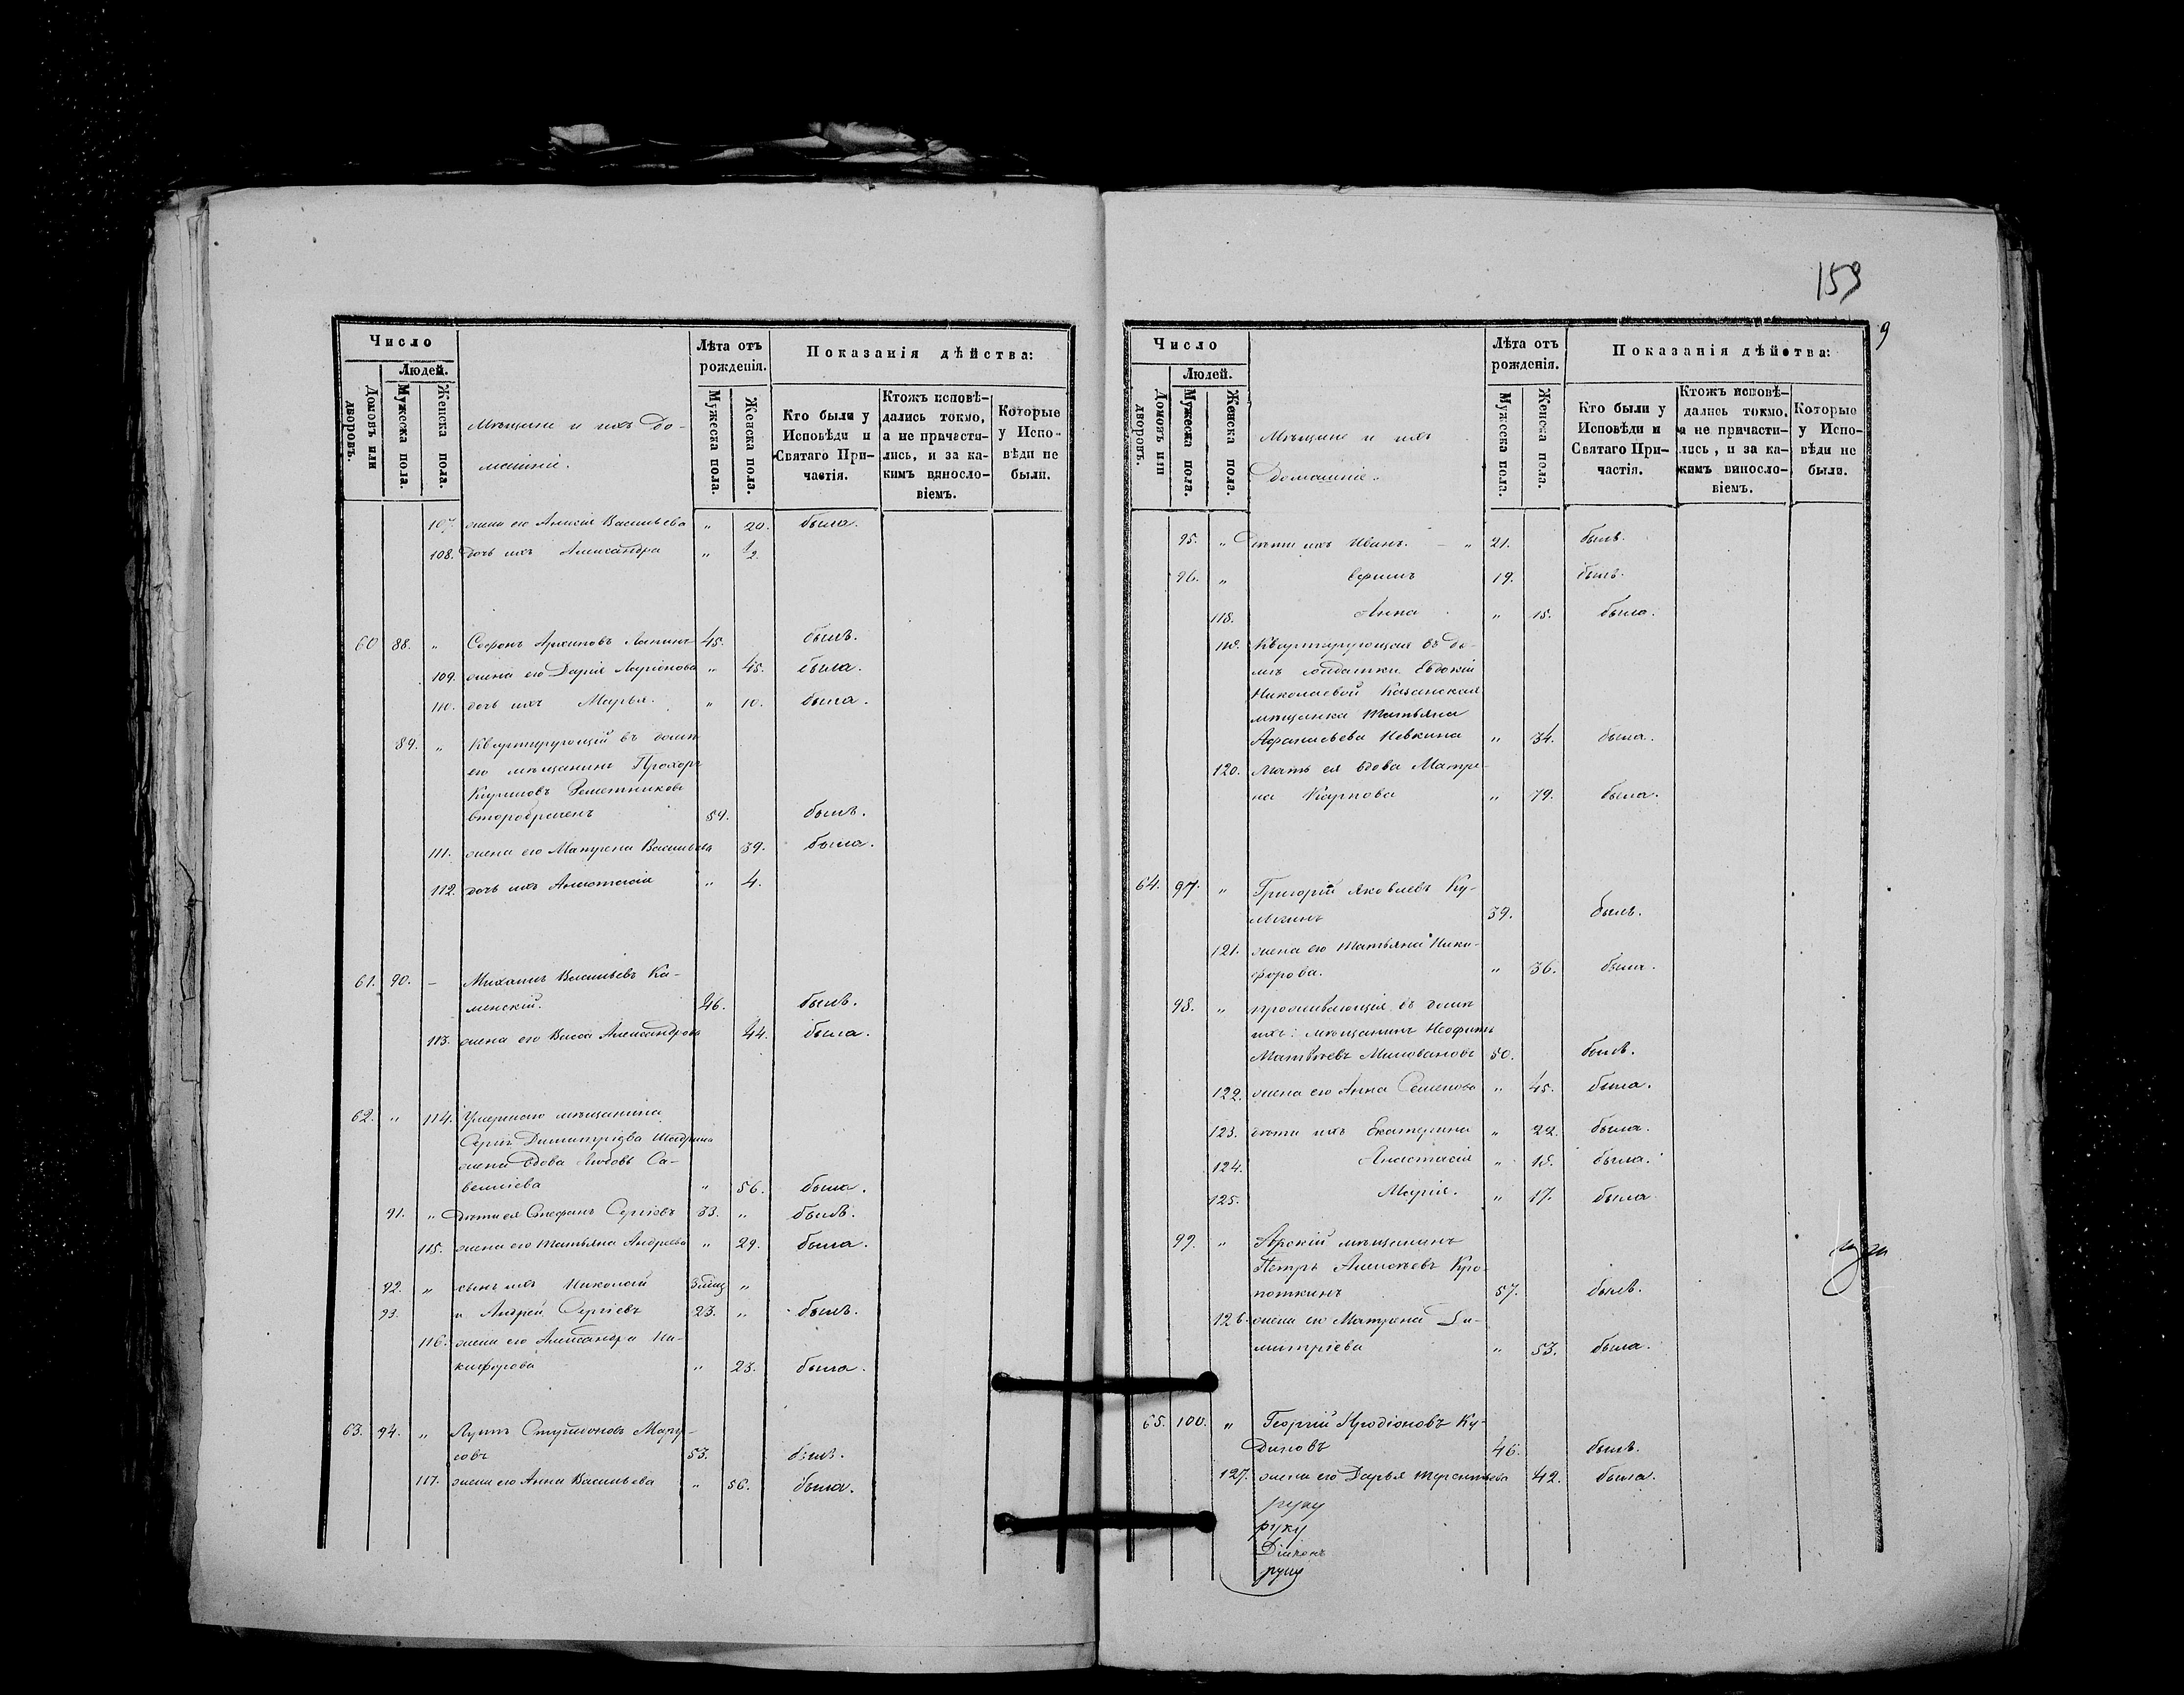 Число
Людей.
Домовъ или дворовъ.
Мужеска пола.
Женска пола.
Мѣщане и ихъ до-
машніе.
Лѣта отъ
рожденія.
Мужеска пола.
Женска пола.
Показанія дѣйства:
Кто были у
Исповѣди и
Святаго При-
частія.
Ктожъ исповѣ-
дались токмо,
а не причасти-
лись, и за ка-
кимъ винословіемъ.
Которые
у Испо-
вѣди не
были.
107. жена его Васильева " 20. была.
108. дочь ихъ Александра " ½.
60 88. " Софонъ Архиповъ Лапинъ 45. былъ.
109. жена его Дарія Ларіонова " 45. была.
110. дочь ихъ Марья. " 10. была.
89. " Квартирующій въ домѣ
его мѣщанинъ Прохоръ
Кириловъ Решетниковъ
второбраченъ 59. былъ.
111. жена его Матрена Васильева 39. была.
112. дочь ихъ Анастасія " 4.
61. 90. – Михаилъ Васильевъ Ка-
менскій. 46. былъ.
113. жена его Васса Александрова 44. была.
62. " 114. Умершаго мѣщанина
Сергія Димитріева Шадрина
жена вдова Любовь Са-
веліева " 56. была.
91. " Дѣти ея Стефанъ Сергіевъ 33. " былъ.
115. жена его Татьяна Андреева " 29. была.
92. " сынъ ихъ Николай "
93. и Андрей Сергіевъ 23. " былъ.
116. жена его Александра Ни-
кифорова " 23. была.
63. 94. " 53. былъ.
117. жена его Анна Васильева " 56. была.
159
9
Число
Людей.
Домовъ или дворовъ.
Мужеска пола.
Женска пола.
Мѣщане и ихъ
домашніе.
Лѣта отъ
рожденія.
Мужеска пола.
Женска пола.
Показанія дѣйства:
Кто были у
Исповѣди и
Святаго При-
частія.
Ктожъ исповѣ-
дались токмо,
а не причасти-
лись, и за ка-
кимъ винословіемъ.
Которые
у Испо-
вѣди не
были.
95. " Дѣти ихъ Иванъ. – " 21. былъ.
96. " 19. былъ.
118. Анна " 15. была.
119. Квартирующая въ до-
мѣ солдатки Евдокіи
Николаевой Казанская
мѣщанка Татьяна
Афанасьева Невкина " 34. была.
120. мать ея вдова Матре-
на Карпова " 79. была.
64. 97. " Григорій Яковлевъ Ку-
39. былъ.
121. жена его Татьяна Ники-
форова. " 36. была.
98. " проживающія въ домѣ
ихъ: мѣщанинъ Неофитъ
Матвѣевъ Миловановъ 50. былъ.
122. жена его Анна Семенова " 45. была.
123. дѣти ихъ Екатерина " 22. была.
124. Анастасія " 18. была.
125. Марія. " 17. была
99. " Арскій мѣщанинъ
Петръ Алексѣевъ Кро-
поткинъ 57. былъ.
126. жена его Матрена Ди-
митріева " 53. была.
65. 100. " Георгій Иродіоновъ Ку-
диновъ 46. былъ.
127. жена его Дарья Терентьева 42. была.
руку
руку
Діаконъ
руку